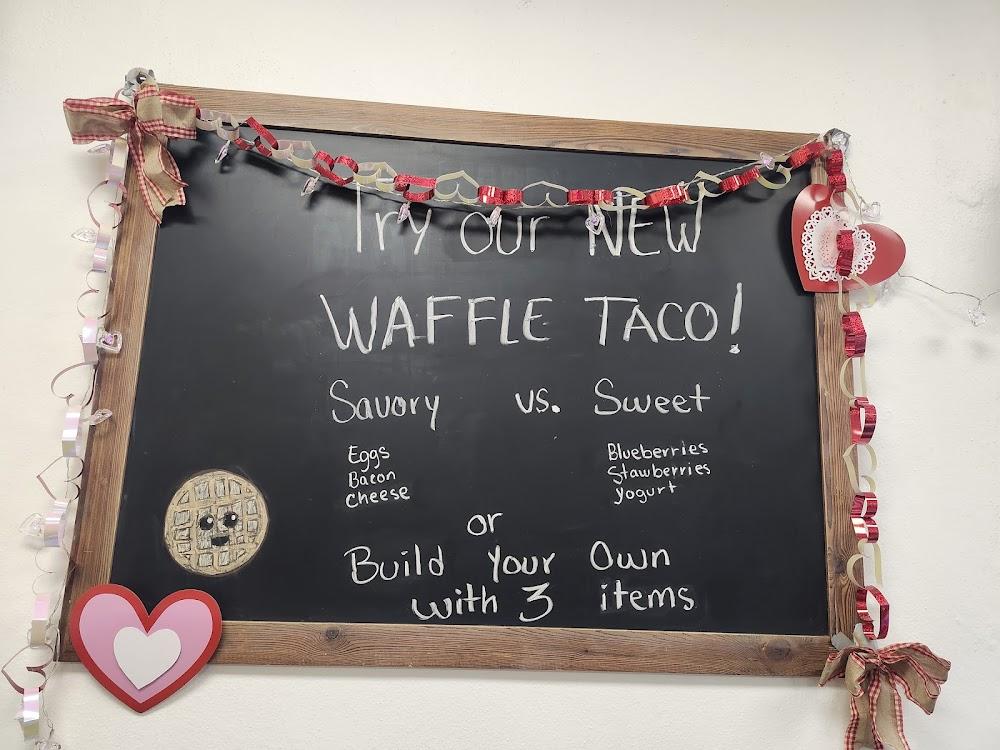 Try our NEW
WAFFLE TACO!
Savory vs. Sweet
Eggs Blueberries
Bacon Stawberries
Cheese Yogurt
or
Build Your Own
with 3 items